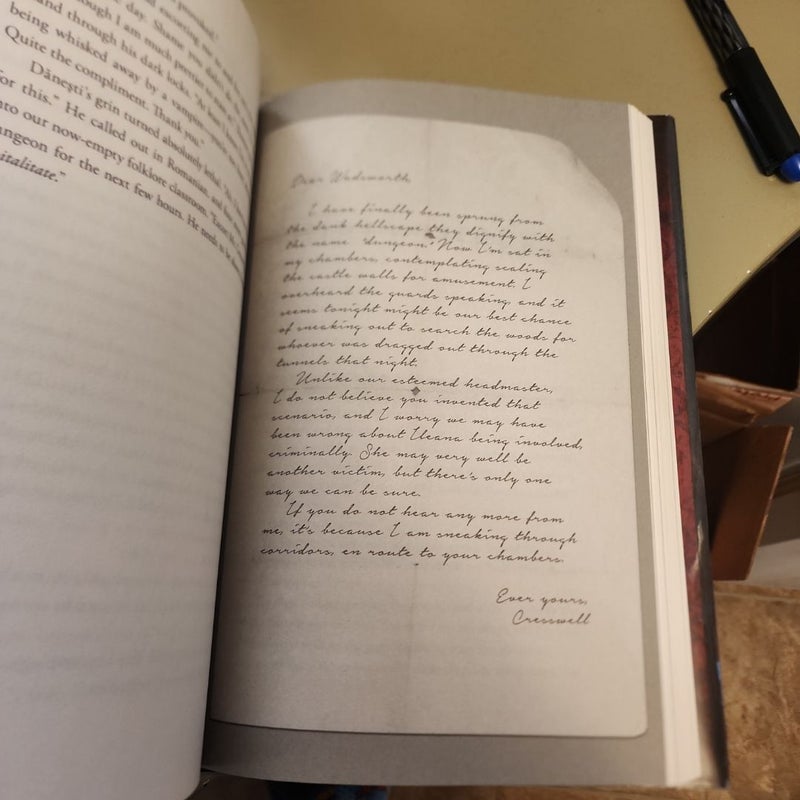 provided."
escorting me to and
day. Shame you didn't
though I am much prettier
and through his dark locks. "At least I
being whisked away by a vampire
Quite the compliment. Thank you."
Dăneşti's grin turned absolutely lethal.
for this." He called out in Romanian, and
into our now-empty folklore classroom. "Escort
ungeon for the next few hours. He need to be
italitate."
Dear Wadsworth,
I have finally been sprung from
the dank hellscape they dignify with
the name "dungeon." Now I'm sat in
my chambers, contemplating scaling
the castle walls for amusement. I
overheard the guards speaking, and it
seems tonight might be our best chance
of sneaking out to search the woods for
whoever was dragged out through the
tunnels that night.
Unlike our esteemed headmaster,
I do not believe you invented that
scenario, and I worry we may have
been wrong about Ileana being involved,
criminally. She may very well be
another victim, but there's only one
way we can be sure.
If you do not hear any more from
me, it's because I am sneaking through
corridors, en route to your chambers.
Ever yours,
Cresswell